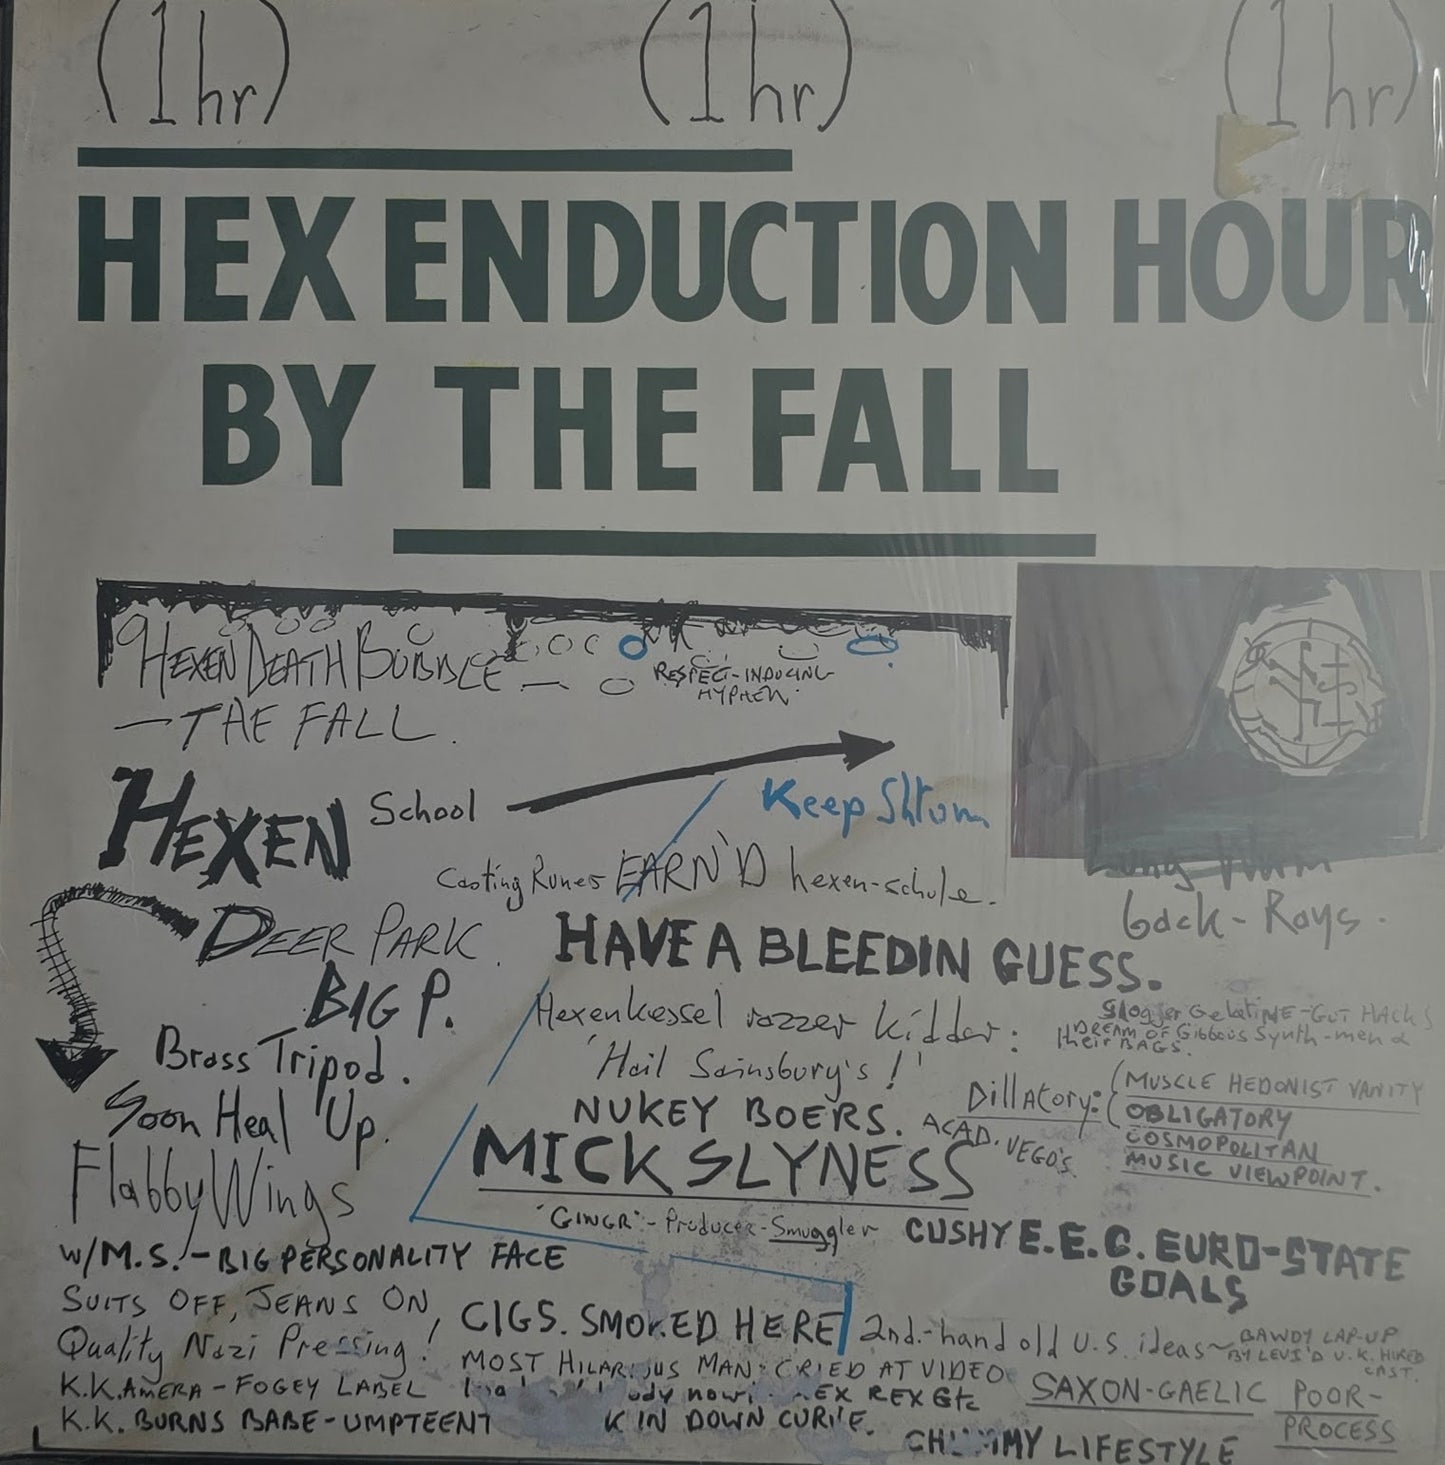 (1 hr) (1 hr) (1 hr)
HEX ENDUCTION HOUR
BY THE FALL
HEXEN DEATH BUBBLE
RESPECT-INDUCING
HYPHEN
—THE FALL.
HEXEN School
Keep Shtum
Casting Runes EARN'D hexen-schule.
back-Rays.
DEER PARK.
HAVE A BLEEDIN GUESS.
BIG P.
Hexenkessel rozzer kidder:
'Hail Sainsbury's!'
Slogger Gelatine-Gut HACKS
DREAM OF Gibbous Synth-men &
their BAGS.
Brass Tripod.
Soon Heal 'Up.
NUKEY BOERS.
ACAD. VEGO'S
Dillatory: (MUSCLE HEDONIST VANITY
(OBLIGATORY
COSMOPOLITAN
MUSIC VIEWPOINT.
MICK SLYNESS
Flabby Wings
'GINGR'-Producer-Smuggler
CUSHY E.E.C. EURO-STATE
GOALS
W/M.S.-BIG PERSONALITY FACE
SUITS OFF, JEANS ON,
Quality Nazi Pressing!
K.K.AMERA-FOGEY LABEL
K.K. BURNS BABE-UMPTEENT
CIGS. SMOKED HERE
MOST HILARIOUS MAN: CRIED AT VIDEO
nowi REX Etc
K IN DOWN
2nd.-hand old U.S. ideas~
BAWDY LAP-UP
BY LEVI'D U.K. HIRED
CAST.
SAXON-GAELIC POOR-
PROCESS
CHUMMY LIFESTYLE